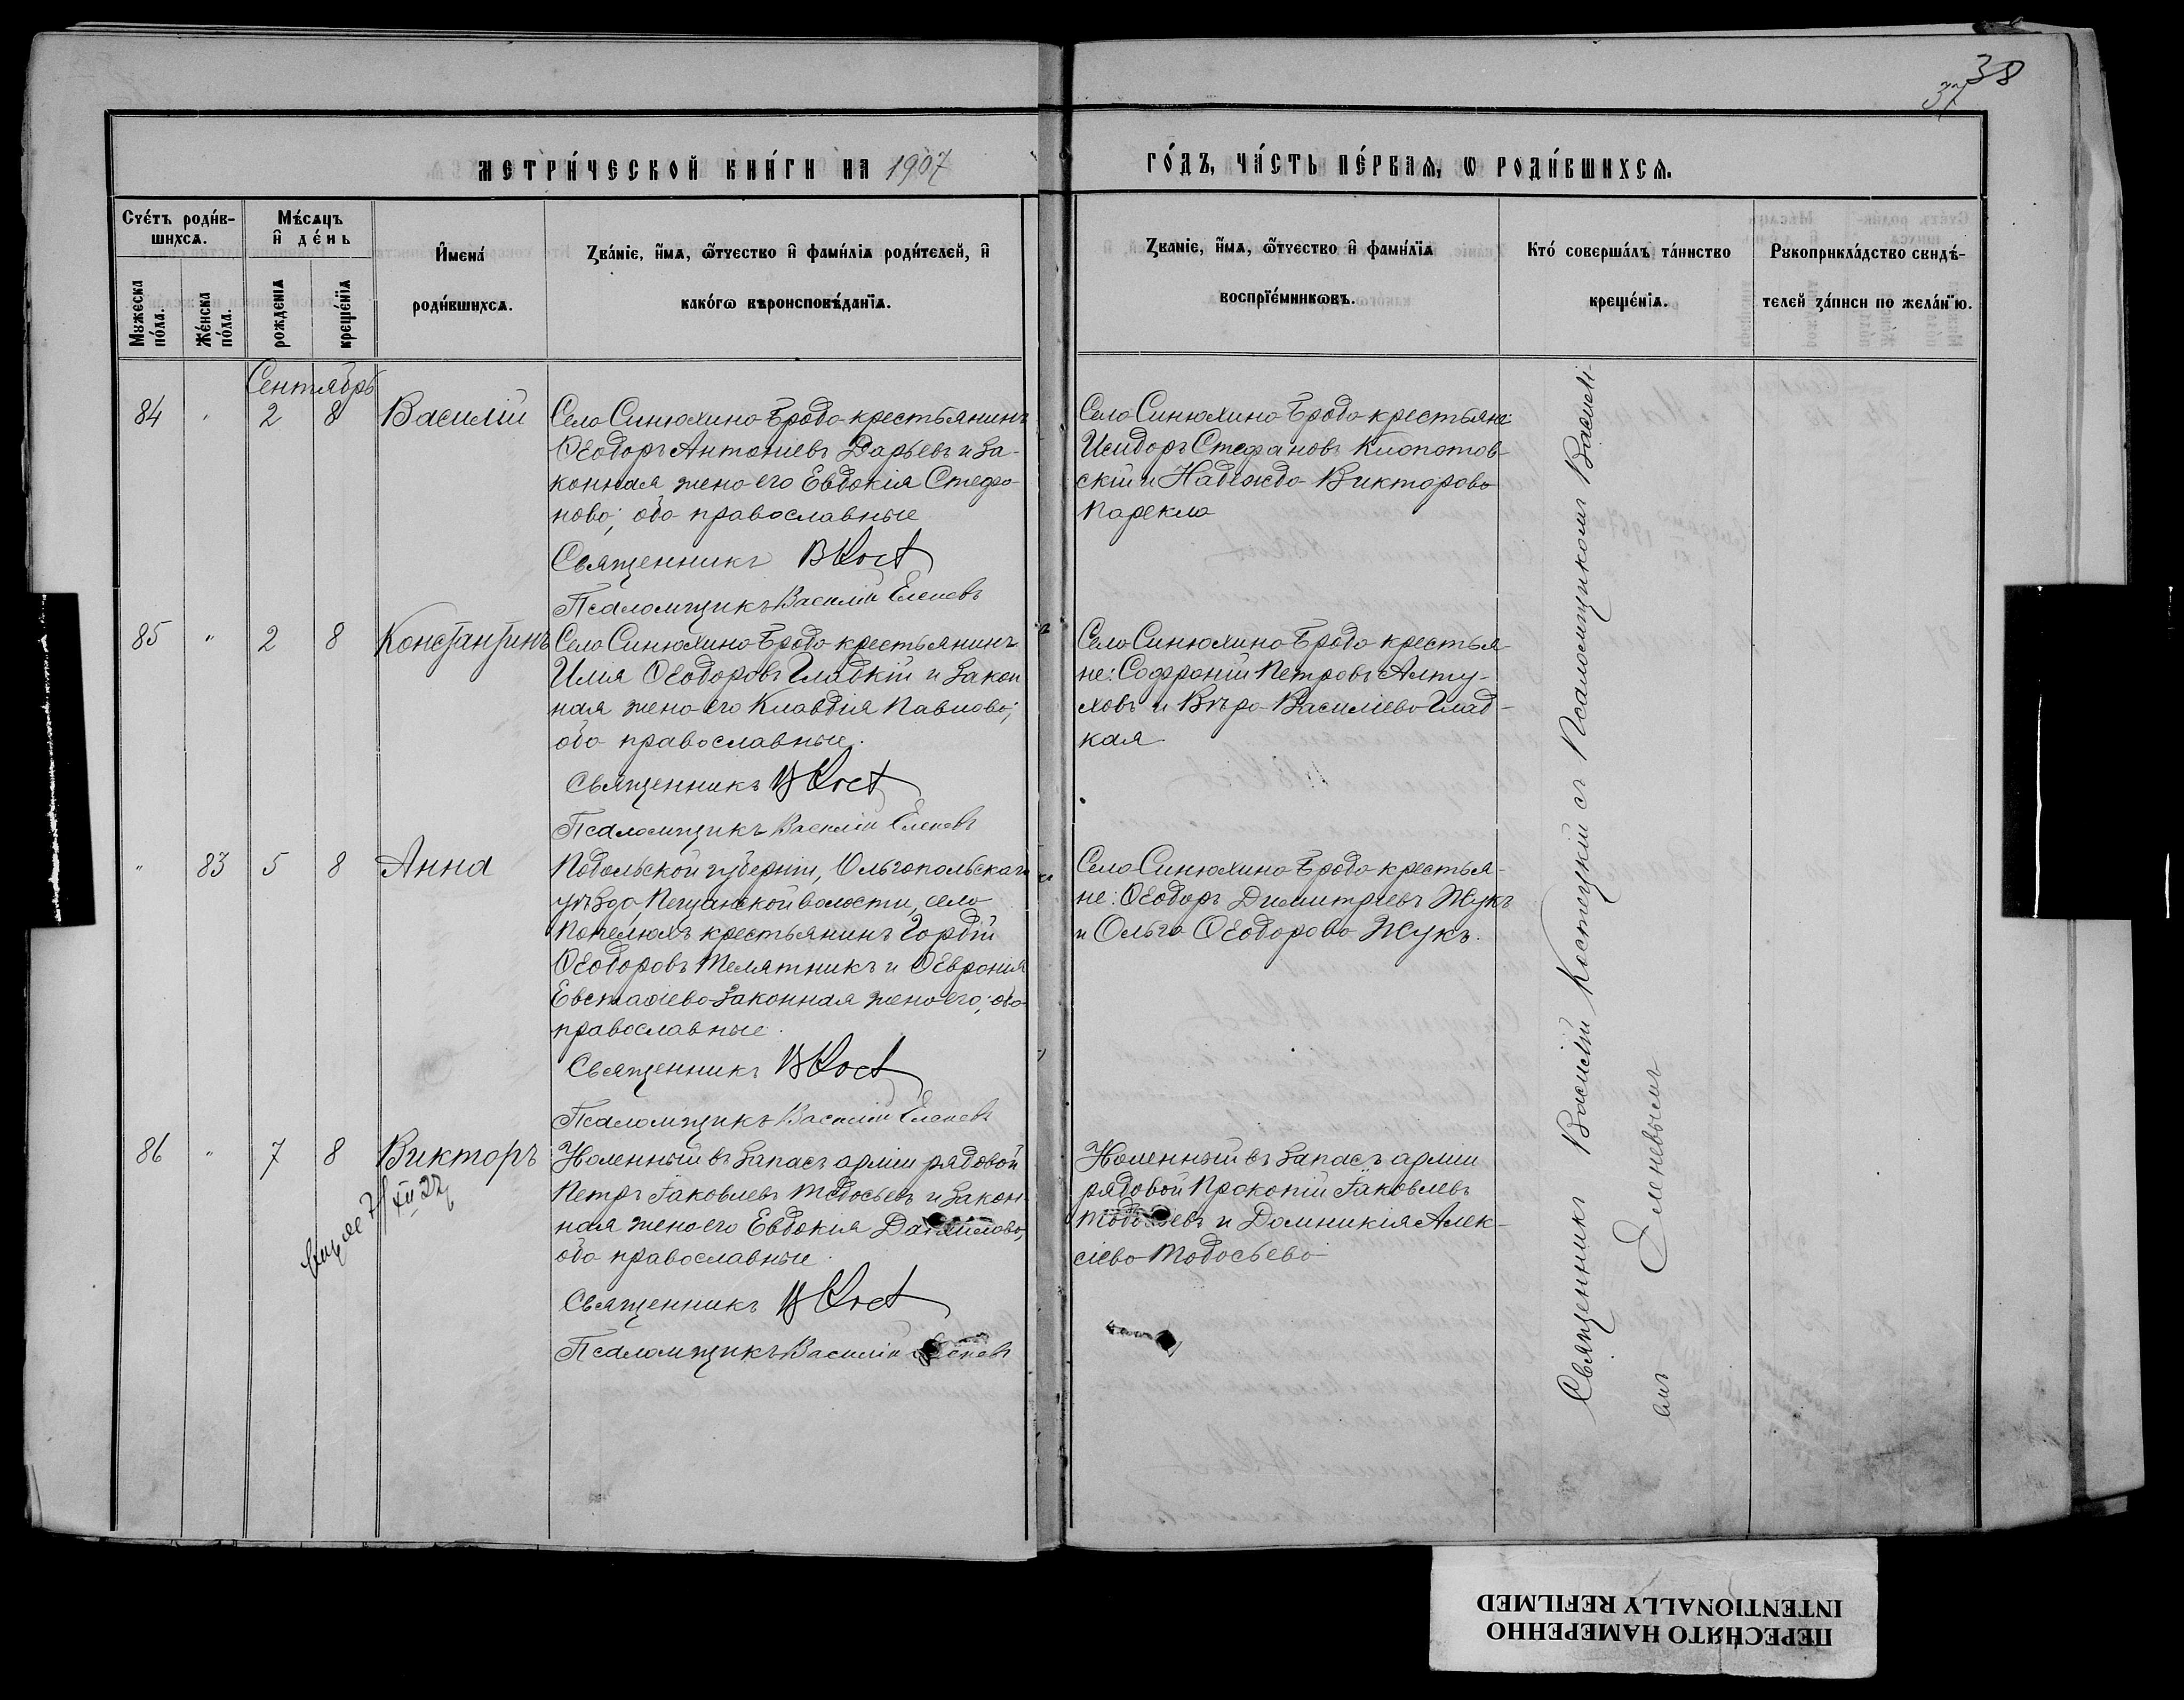 38
37
МЕТРИ́ЧЕСКОЙ КНИ́ГИ НА 1907
ГО́ДЪ, ЧА́СТЬ ПЕ́РВАѦ, Ѡ РОДИ́ВШИХСѦ.
Сче́тъ роди́в-
шихсѧ.
Мѣ́сѧцъ
и҆ де́нь
Мꙋжеска по́ла.
Же́нска по́ла.
рожденіѧ
креще́нїѧ
И҆мена́
роди́вшихсѧ.
Зва́ніе, и҆́мѧ, ѻ҆́тчество и҆ фами́ліѧ роди́телей, и҆
како́гѡ вѣроисповѣ́данїѧ.
Званіе, и҆́мѧ, ѻ҆́тчество и҆ фами́лїѧ
воспрїе́мникѡвъ.
Кто́ соверша́лъ та́инство
креще́нїѧ.
Рꙋкоприкла́дство свидѣ́-
телей за́писи по жела́нїю.
Сентябрь
84 " 2 8 Василій
Село Синюхино-Бродо крестьянинъ
Ѳеодоръ Антоніевъ Дарьевъ и за-
конная жена его Евдокія Стефа-
нова; оба православные
Священникъ ВКост
Псаломщикъ Василій Еленевъ
Село Синюхино-Бродо крестьяне:
Исидоръ Стефановъ Клопотов-
скій и Надежда Викторова
Парекла
85 " 2 8 Константинъ
Село Синюхино-Бродо крестьянинъ
Илія Ѳеодоровъ Гладкій и закон
ная жена его Клавдія Павлова;
оба православные.
Священникъ ВКост
Псаломщикъ Василій Еленевъ
Село Синюхино-Бродо крестья-
не: Софроній Петровъ Алту-
ховъ и Вѣра Василіева Глад-
кая
" 83 5 8 Анна
Подольской губерніи, Ольгопольскаго
уѣзда, Пещанской волости, село
Попелюхъ крестьянинъ Гордій
Ѳеодоровъ Телятникъ и Ѳевронія
Евстафіева законная жена его; оба
православные.
Священникъ ВКост
Псаломщикъ Василій Еленевъ
Село Синюхино-Бродо крестья-
не: Ѳеодоръ Димитріевъ Жукъ
и Ольга Ѳеодорова Жукъ.
86 " 7 8 Викторъ
7/XII 27
въ запасъ арміи рядовой
Петръ Іаковлевъ Тодосьевъ и закон-
ная жена его Евдокія Даніилова,
оба православные.
Священникъ ВКост
Псаломщикъ Василій Еленевъ
въ запасъ арміи
рядовой Прокопій Іаковлевъ
Тодосьевъ и Домникія Алек-
сіева Тодосьева
Священникъ Василій Костецкій съ Псаломщикомъ Василі-
емъ Еленевымъ
ПЕРЕСНЯТО НАМЕРЕННО
INTENTIONALLY REFILMED